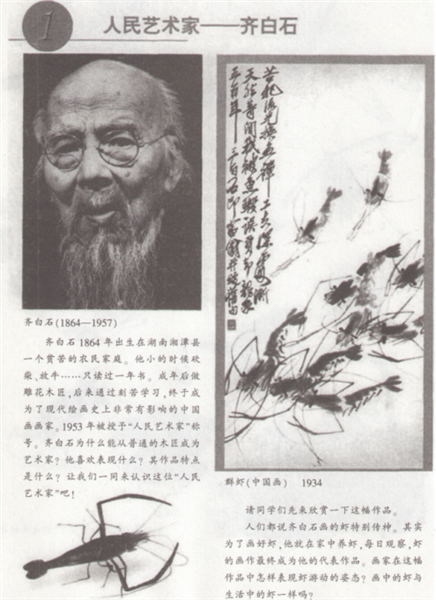 1
人民艺术家——齐白石
齐白石(1864—1957)
齐白石1864年出生在湖南湘潭县
一个贫苦的农民家庭。他小的时候砍
柴、放牛……只读过一年书。成年后做
雕花木匠,后来通过刻苦学习,终于成
为了现代绘画史上非常有影响的中国
画画家。1953年被授予“人民艺术家”称
号。齐白石为什么能从普通的木匠成为
艺术家？他喜欢表现什么？其作品特点
是什么？让我们一同来认识这位“人民
艺术家”吧！
群虾(中国画) 1934
请同学们先来欣赏一下这幅作品。
人们都说齐白石画的虾特别传神。其实
为了画好虾,他就在家中养虾,每日观察,虾
的画作最终成为他的代表作品。画家在这幅
作品中怎样表现虾游动的姿态？画中的虾与
生活中的虾一样吗？